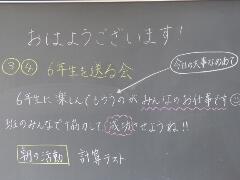 おはようございます!
③④ 6年生を送る会
今日の大事なめあて
6年生に楽しんでもらうのがみんなのお仕事です
班のみんなで協力して成功させようね!!
朝の活動 計算テスト